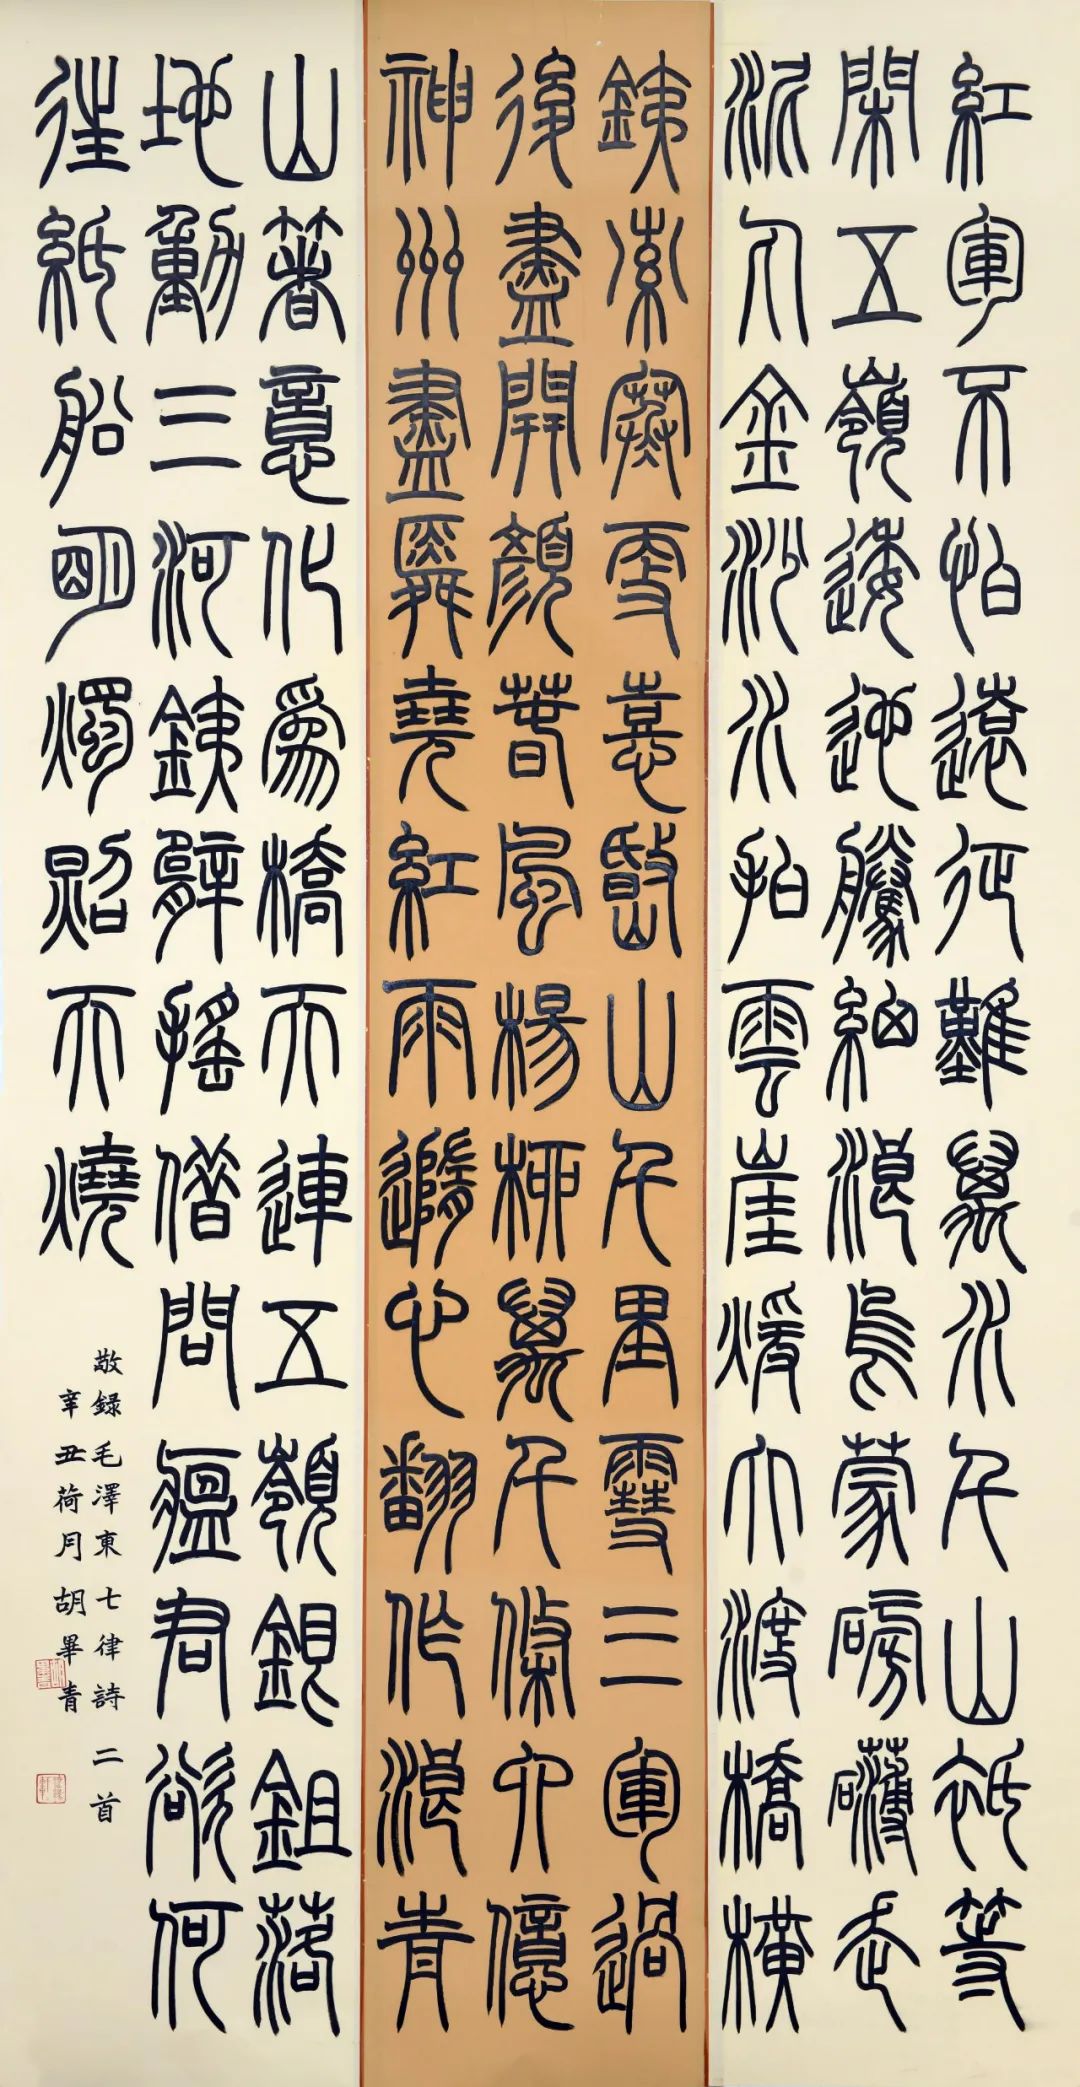 紅軍不怕遠征難萬水千山祇等
閑五嶺逶迤騰細浪烏蒙磅礴走
泥丸金沙水拍雲崖暖大渡橋橫
鐵索寒更喜岷山千里雪三軍過
後盡開顏春風楊柳萬千條六億
神州盡舜堯紅雨隨心翻作浪青
山著意化為橋天連五嶺銀鉏落
地動三河鐵臂搖借問瘟君欲何
往紙船明燭照天燒
敬録毛澤東七律詩二首
辛丑荷月胡畢青